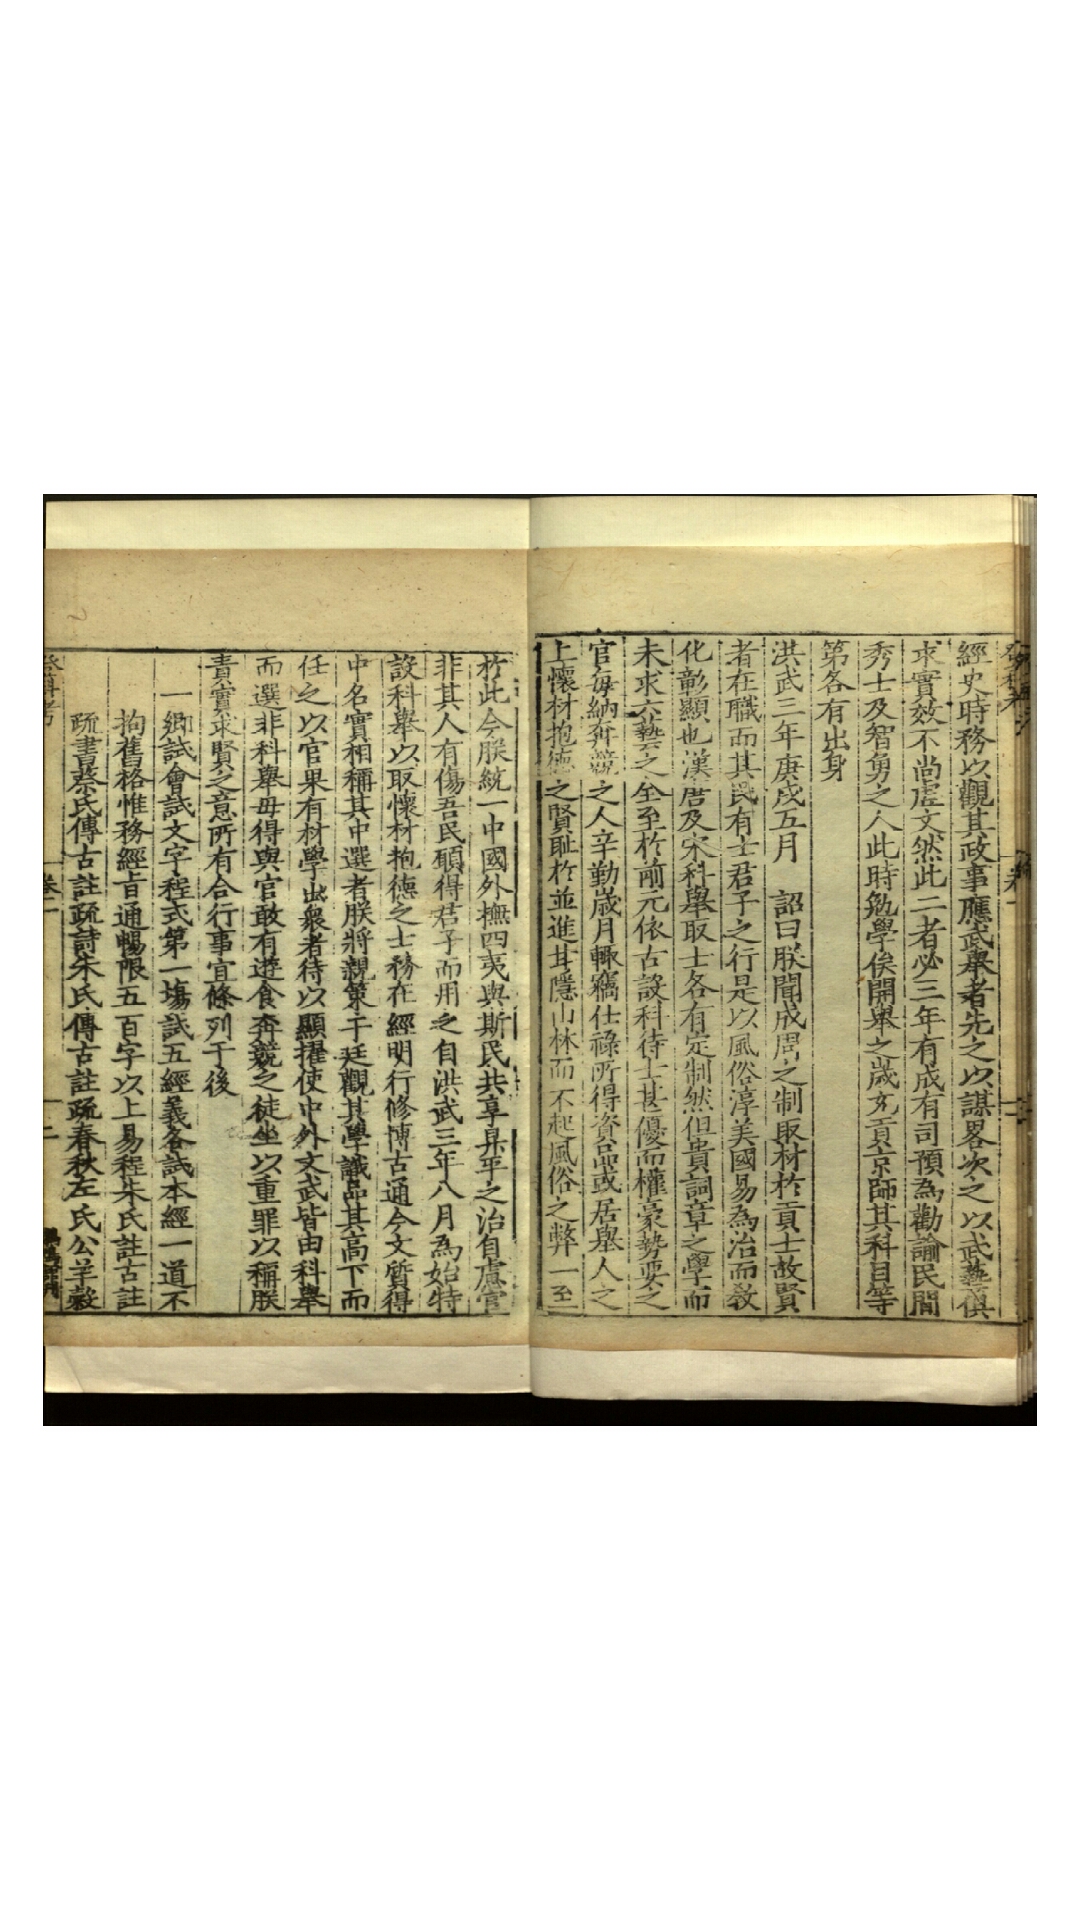 經史時務以觀其政事應武舉者先之以謀畧次之以武藝俱
求實效不尚虛文然此二者必三年有成有司預為勸諭民間
秀士及智勇之人此時勉學俟開舉之歲充貢京師其科目等
第各有出身
洪武三年庚戌五月　詔曰朕聞成周之制取材於貢士故賢
者在職而其民有士君子之行是以風俗淳美國易為治而教
化彰顯也漢唐及宋科舉取士各有定制然但貴詞章之學而
未求六藝之全至於前元依古設科待士甚優而權豪勢要之
官每納奔競之人辛勤歲月輒竊仕祿所得資品或居舉人之
上懷材抱德之賢恥於並進甘隱山林而不起風俗之弊一至
於此今朕統一中國外撫四夷與斯民共享昇平之治自慮官
非其人有傷吾民願得君子而用之自洪武三年八月為始特
設科舉以取懷材抱德之士務在經明行修博古通今文質得
中名實相稱其中選者朕將親策于廷觀其學識品其高下而
任之以官果有材學出衆者待以顯擢使中外文武皆由科舉
而選非科舉毋得與官敢有遊食奔競之徒坐以重罪以稱朕
責實求賢之意所有合行事宜條列于後
一鄉試會試文字程式第一塲試五經義各試本經一道不
拘舊格惟務經旨通暢限五百字以上易程朱氏註古註
疏書蔡氏傳古註疏詩朱氏傳古註疏春秋左氏公羊穀
登科考　卷一　二